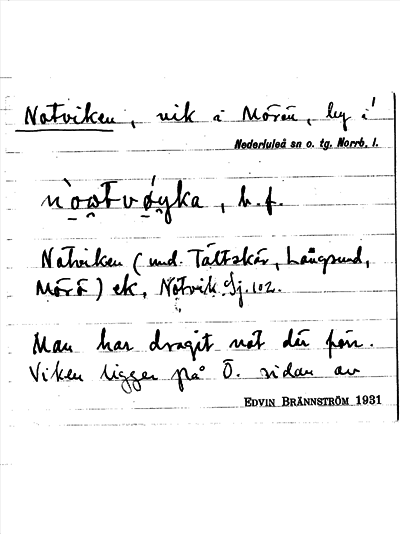 Notviken, vik å Mörön, by i
Nederluleå sn o. tg. Norrb. l.
, b.f.
Notviken (und. Tältskär, Långsund,
Mörö) ek. Nötvik Sj. 102.
Man har dragit not där förr.
Viken ligger på Ö. sidan av
EDVIN BRÄNNSTRÖM 1931